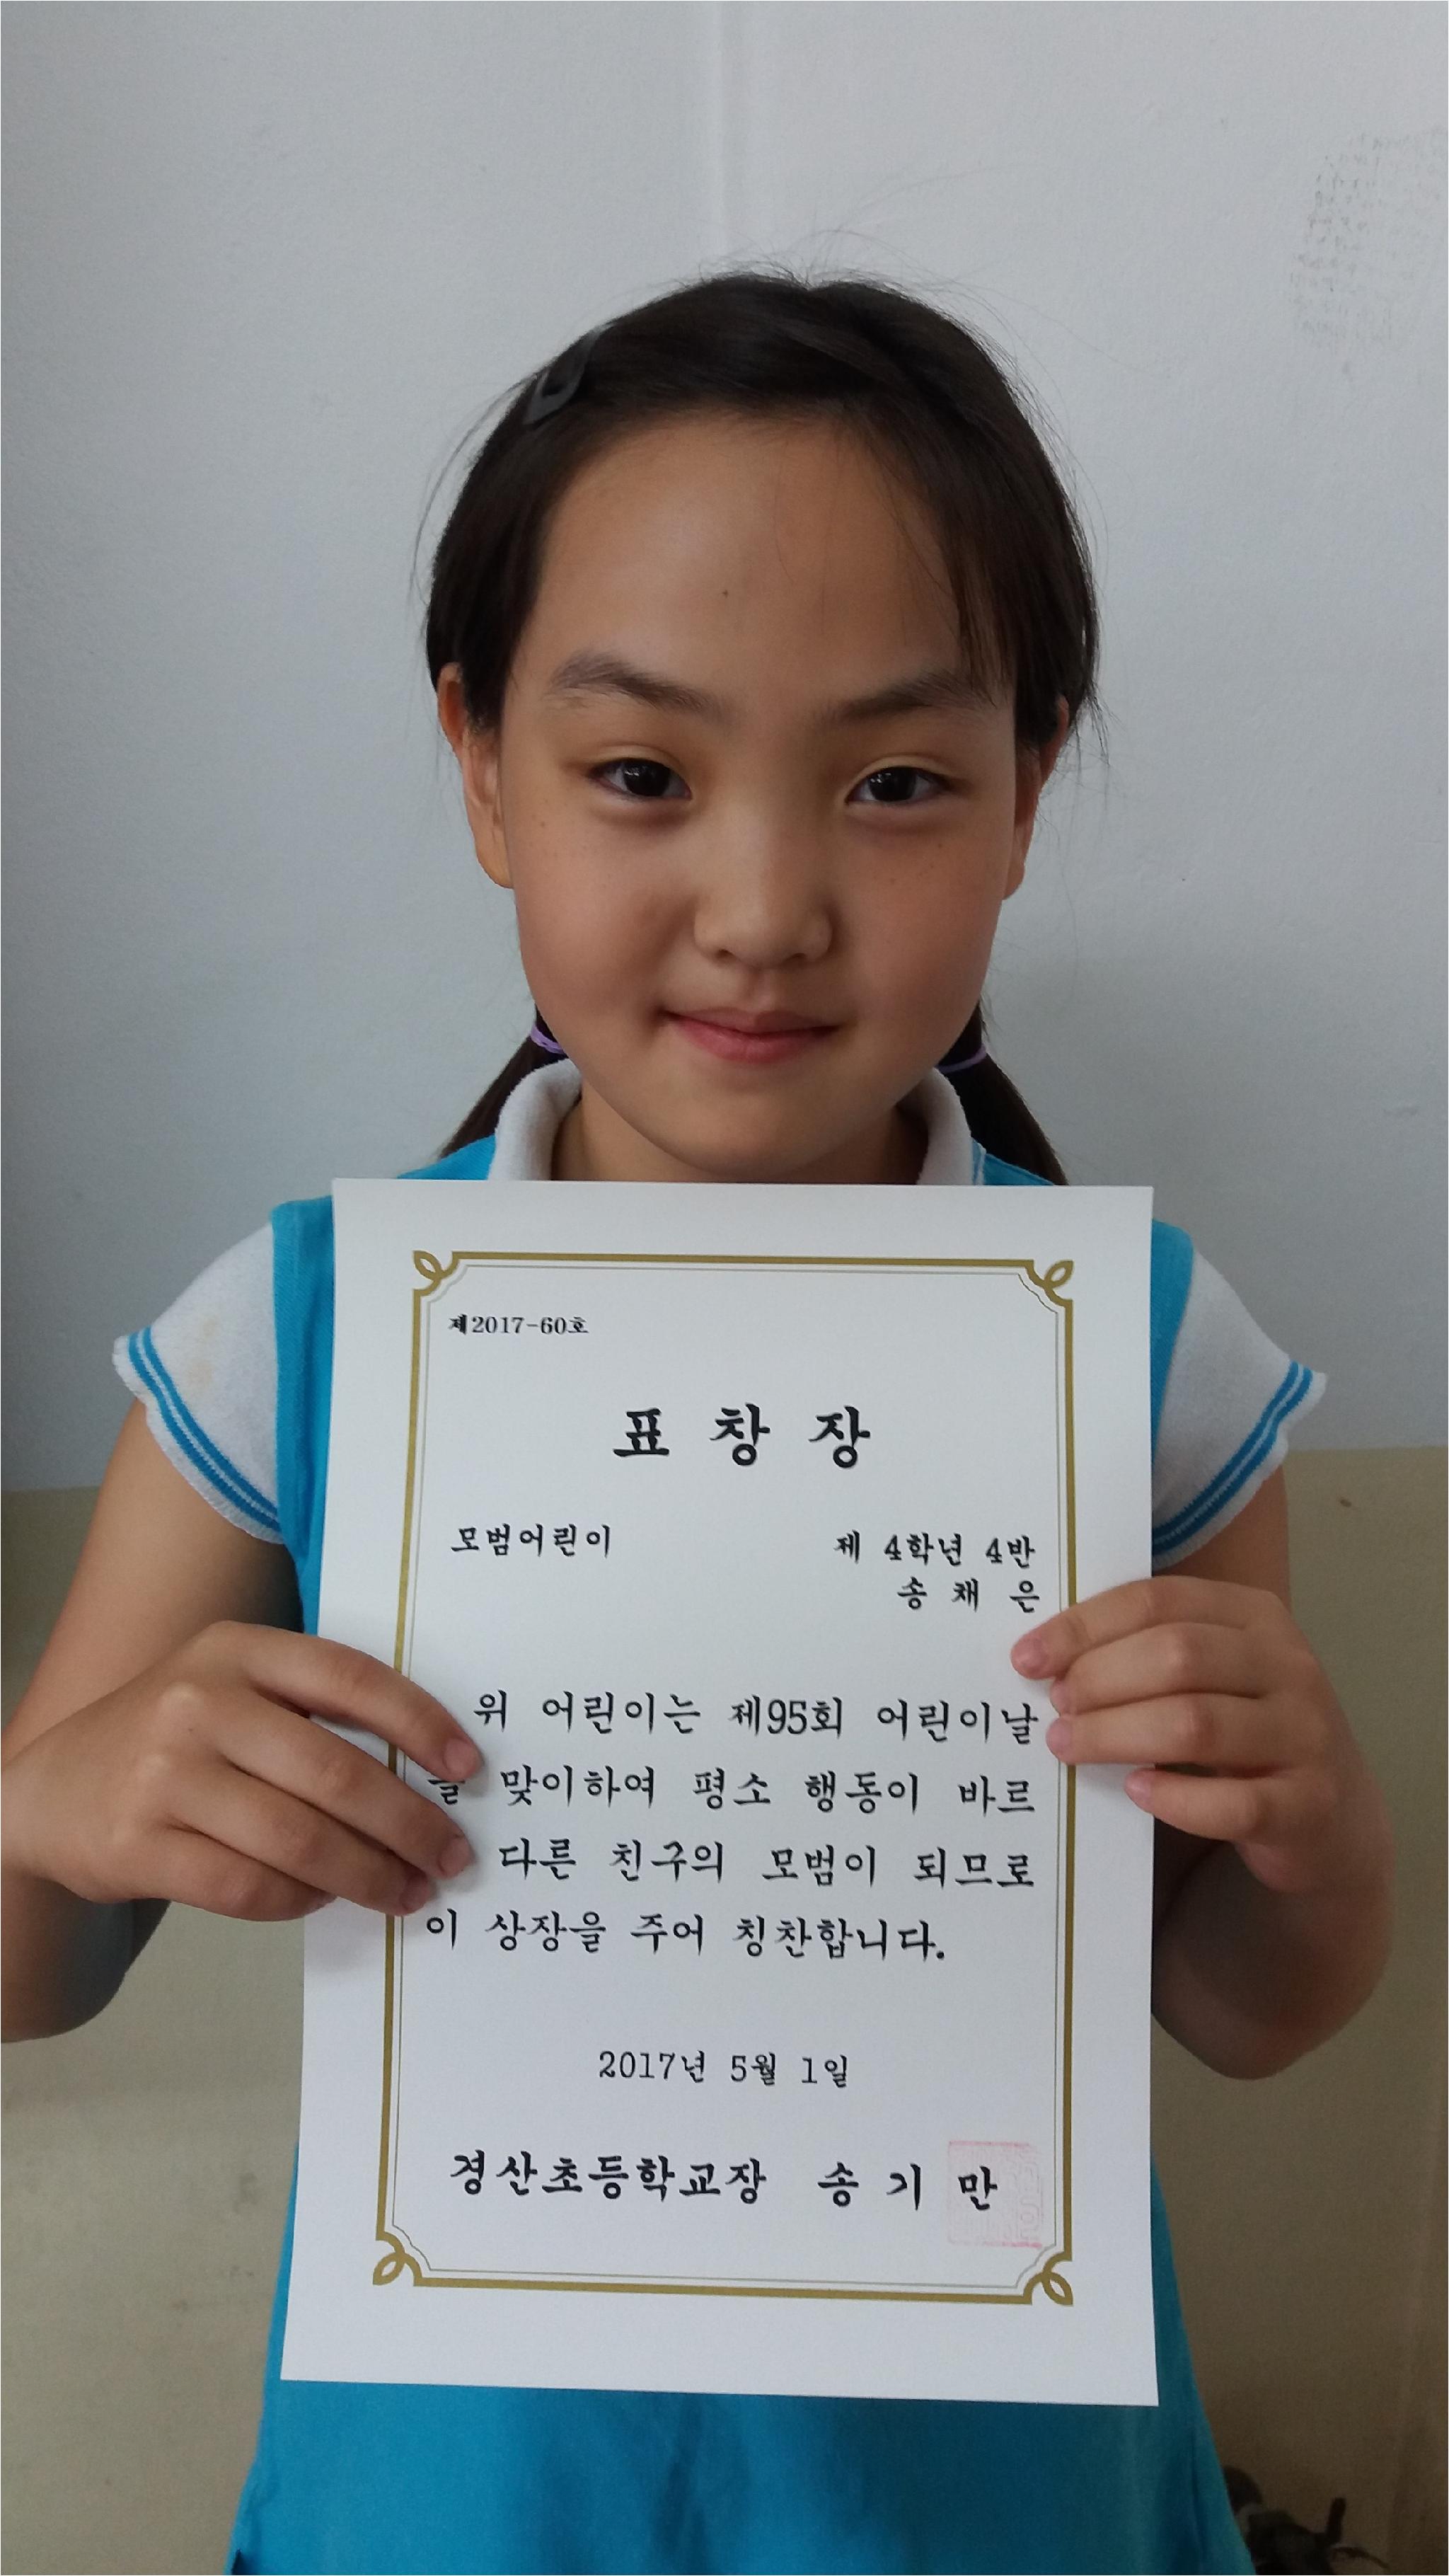 제2017-60호
표 창 장
모범어린이
제 4학년 4반
송 채 은
위 어린이는 제95회 어린이날
을 맞이하여 평소 행동이 바르
다른 친구의 모범이 되므로
이 상장을 주어 칭찬합니다.
2017년 5월 1일
경산초등학교장 송 기 만